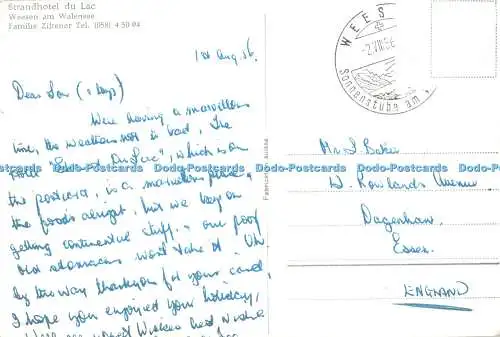 Strandhotel du Lac
Weesen am Walensee
Familie Zifrener Tel. (058) 4 50 04
1st Aug. 56.
Dear Son (& boys)
Were having a marvellous
time, the weathers not so bad, The
Hotel "Du Lac", which is on
the postcard, is a marvellous place,
the foods alright, but we keep on
getting continental stuff, & our poor
old stomachs wont take it. Oh
by the way thankyou for your card,
I hope you enjoyed your holiday,
Wishes best wishes
WEES
-2.VIII.56
Sonnenstube am
Mr S. Baker
Rowlands Avenue
Dagenham
Essex.
ENGLAND
Dodo-Postcards Dodo-Postcards Dodo-Postcards Dodo-Postcards Dodo-Postcards